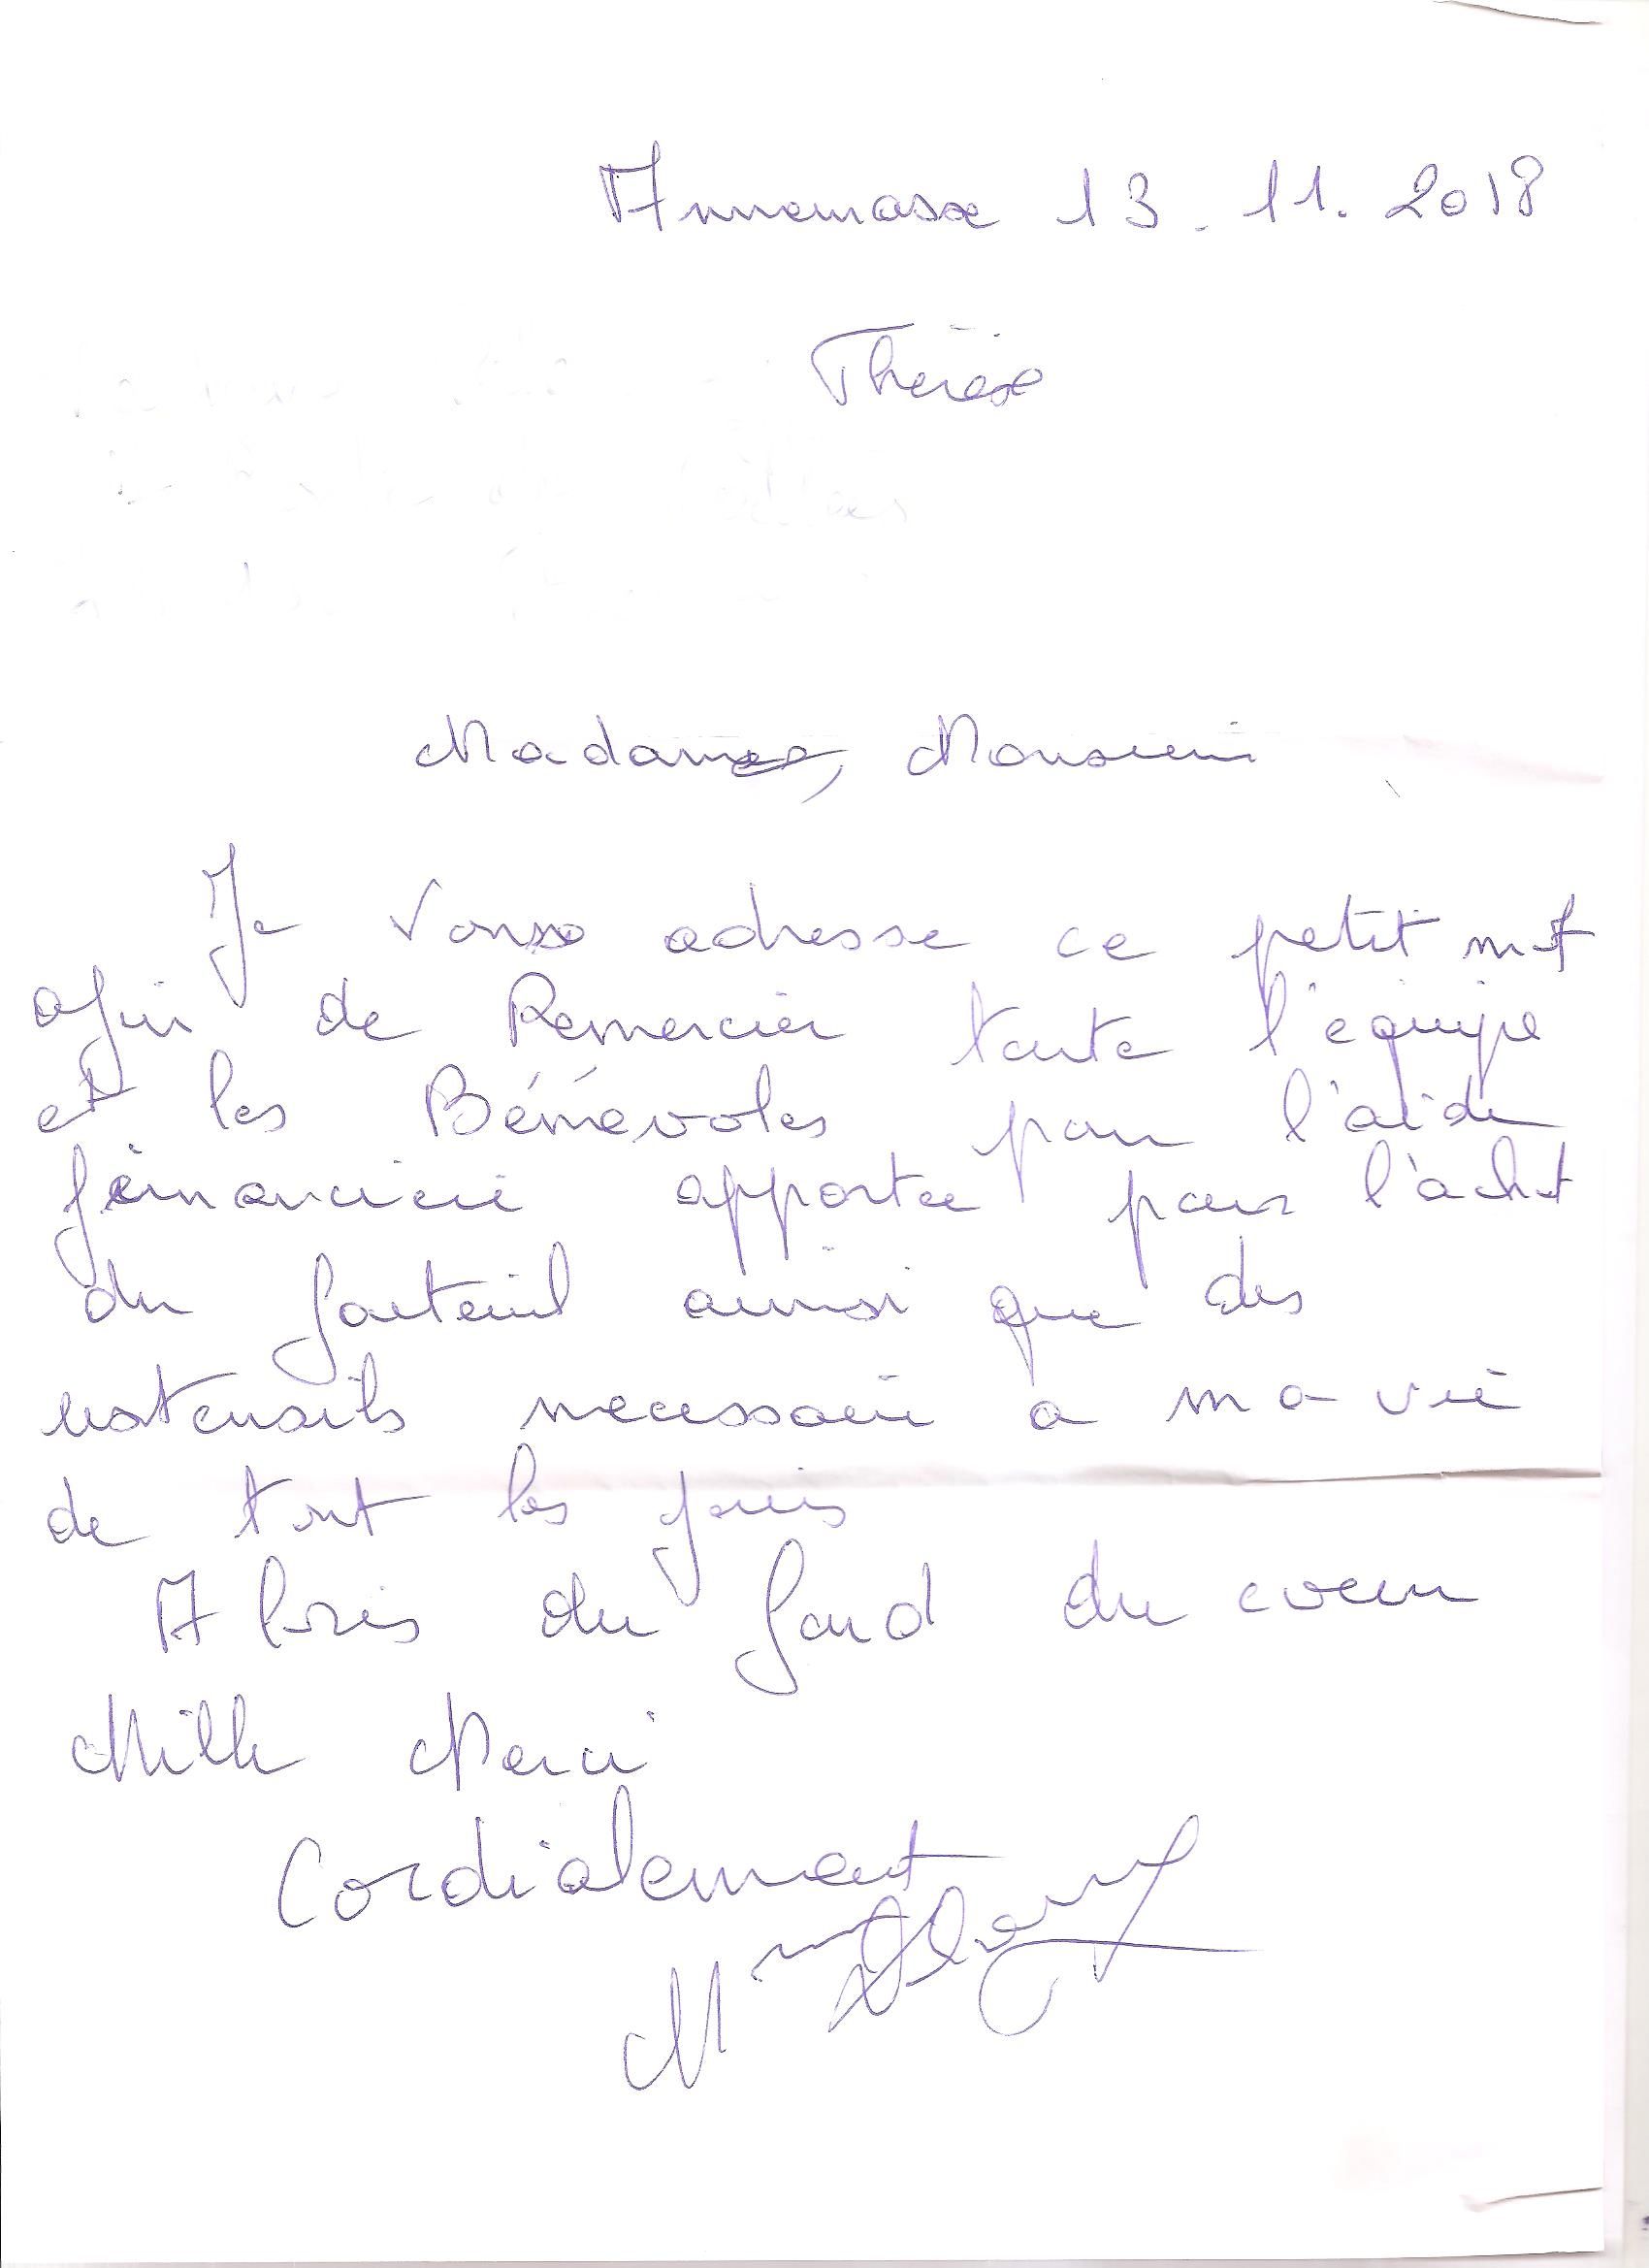 Annemasse 13.11.2018
Thérèse
Madame, Monsieur
Je vous adresse ce petit mot
afin de Remercier toute l'équipe
et les Bénévoles pour l'aide
financière apportee pour l'achat
du fauteuil ainsi que des
ustensils necessaire a ma vie
de tout les jours
Alors du fond du coeur
Mille Merci
Cordialement
Mme